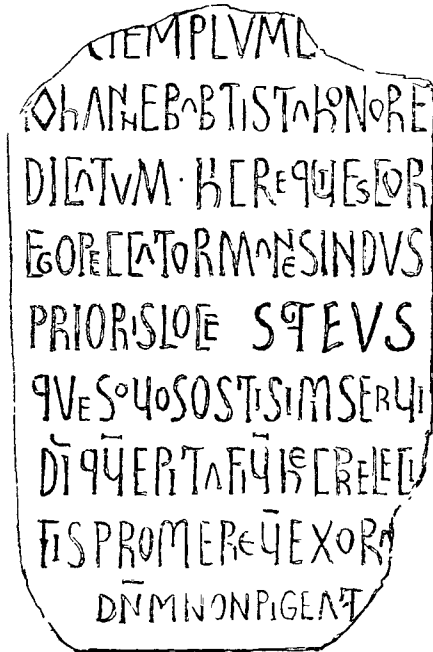 TEMPLVM
IOHANNE BABTISTA HONORE
DICATVM · HIC REQVIESCOR
EGO PECCATOR MANNE SINDVS
PRIORIS LOCE
QVESO VOS OSTISIM SERVI
DI QV EPITAFIV HEC RELEGI
TIS PRO ME REV EXORA
DNM NON PIGEAT